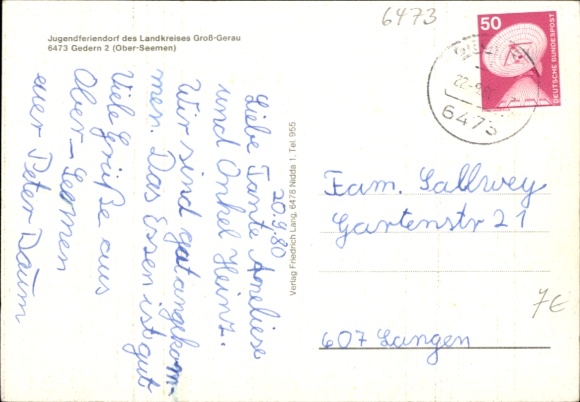 6473
Jugendferiendorf des Landkreises Groß-Gerau
6473 Gedern 2 (Ober-Seemen)
50
DEUTSCHE BUNDESPOST
6473
20.9.80
Liebe Tante Anneliese
und Onkel Heinz.
Wir sind gut angekom-
men. Das Essen ist gut
Viele Grüße aus
Ober-Seemen
euer Peter Daum
Verlag Friedrich Lang, 6478 Nidda 1, Tel. 955
Fam. Sallwey
Gartenstr 21
607 Langen
7€